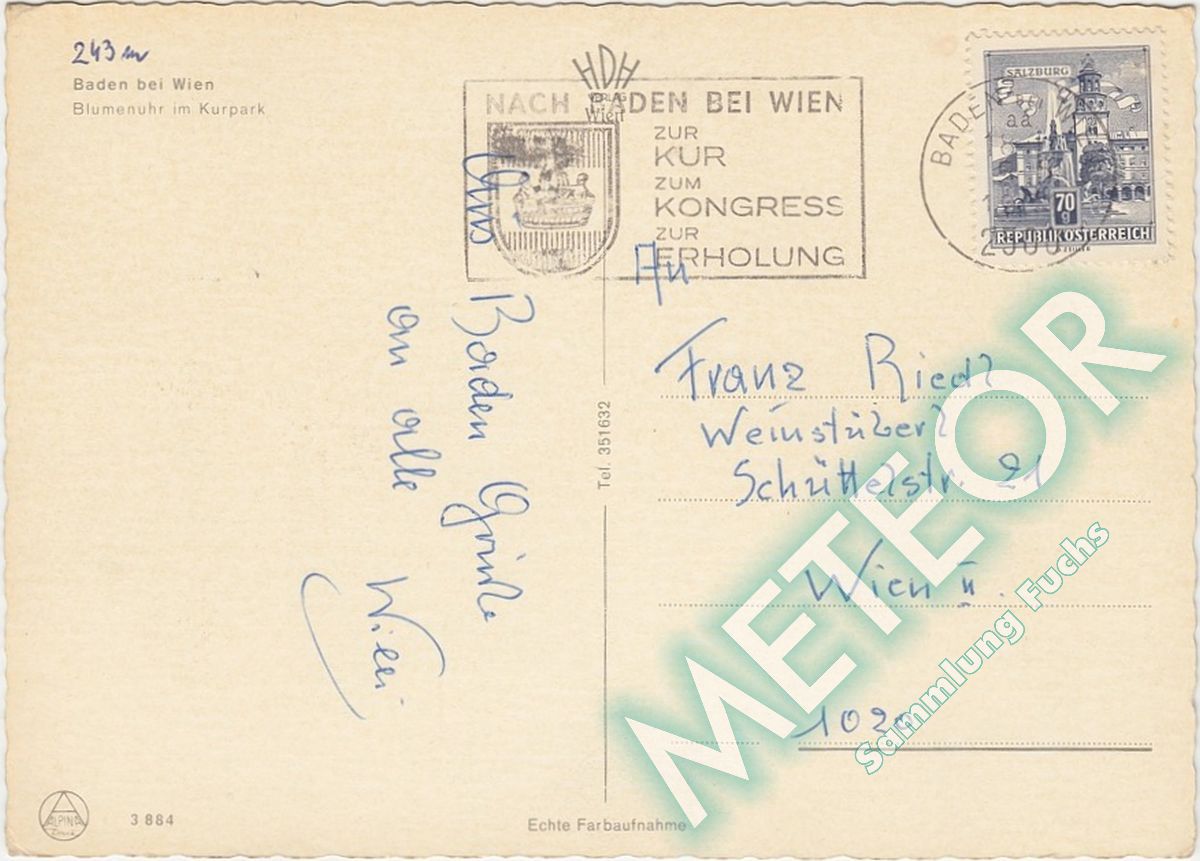 243 m
Baden bei Wien
Blumenuhr im Kurpark
HDH
VERLAG
Wien
NACH BADEN BEI WIEN
ZUR
KUR
ZUM
KONGRESS
ZUR
ERHOLUNG
BADEN
aa
2500
SALZBURG
70
g
REPUBLIK ÖSTERREICH
Aus Baden Grüße
an alle
Willi
An
Franz Riedl
Weinstüberl
Schüttelstr. 21
Wien II.
1020
Tel. 351632
ALPINA
Druck
3 884
Echte Farbaufnahme
METEOR
Sammlung Fuchs